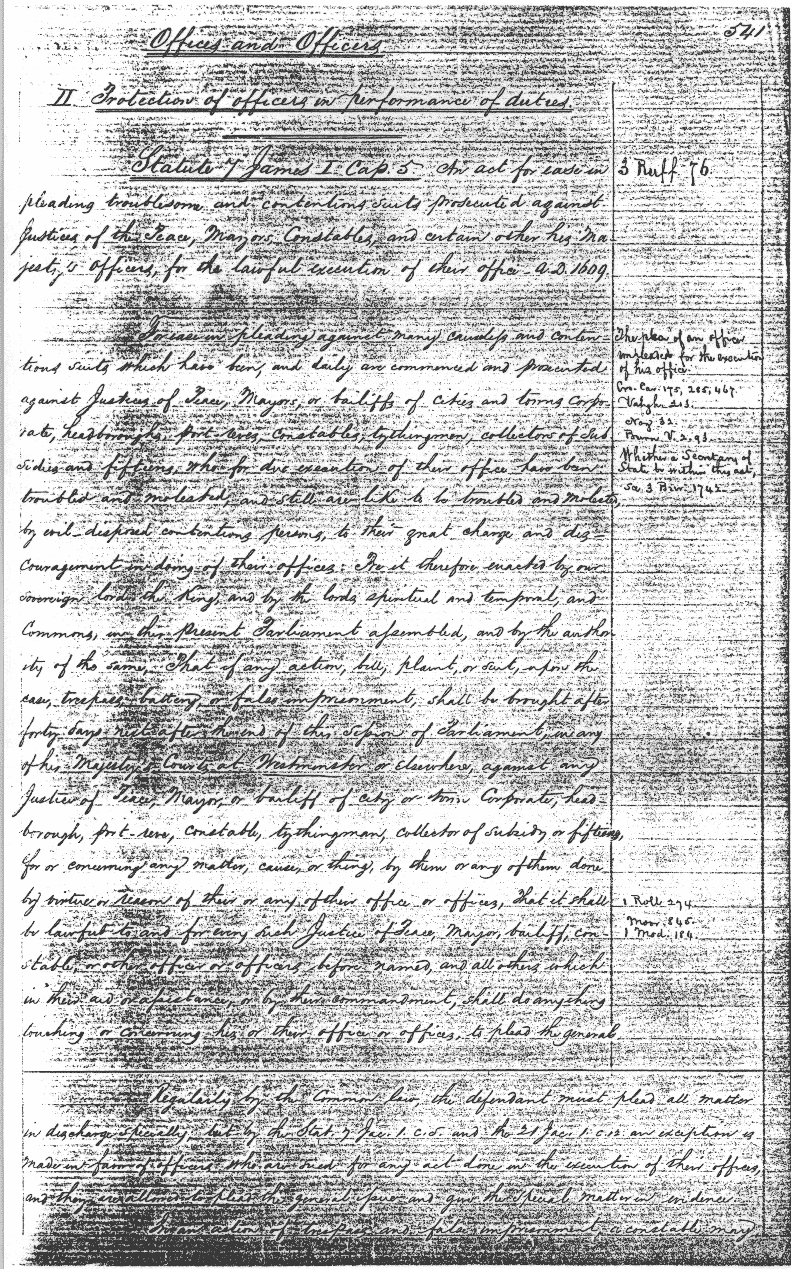 541
Offices and Officers
II Protection of officers in performance of duties.
Statute 7 James I. Cap. 5 An act for ease in
3 Ruff. 76
pleading troublesome and contentious suits prosecuted against
Justices of the Peace, Mayors, Constables, and certain other his Ma-
jesty's Officers, for the lawful execution of their office - A.D. 1609.
For ease in pleading against many causeless and conten-
tious suits which have been, and daily are commenced and prosecuted
against Justices of Peace, Mayors, or bailiffs of cities and towns Corpo-
rate, headboroughs, port-reves, constables, tythingmen, collectors of Sub-
sidies and fifteens, who for due execution of their office have been
troubled and molested, and still are like to be troubled and molested,
by evil-disposed contentious persons, to their great charge and dis-
couragement in doing of their offices: Be it therefore enacted by our
sovereign lord the King, and by the lords spiritual and temporal, and
Commons, in this present Parliament assembled, and by the author-
ity of the same, That if any action, bill, plaint, or suit, upon the
case, trespass, battery, or false imprisonment, shall be brought after
forty days next after the end of this Session of Parliament, in any
of his Majesty's Courts at Westminster or elsewhere, against any
Justice of Peace, Mayor, or bailiff of city or town Corporate, head-
borough, port-reve, constable, tythingman, collector of Subsidy or fifteens,
for or concerning any matter, cause, or thing, by them or any of them done
by virtue or reason of their or any of their office or offices, that it shall
be lawful to and for every such Justice of Peace, Mayor, bailiff, con-
stable, or other officer or officers, before named, and all others which
in their aid or assistance, or by their commandment, shall do any thing
touching or concerning his or their office or offices, to plead the general
The plea of an officer
impleaded for the execution
of his office.
Cro. Car. 175, 285, 467.
Vaugh. 213.
Noy. 32.
V. 2, 93.
Whether a Secretary of
State be within this act,
3 Burr. 1742.
1 Roll. 274
Moor. 845.
1 Mod. 184
Regularly by the Common law, the defendant must plead all matter
in discharge specially, but by the Stat. 7 Jac. 1. c. 5 and the 21 Jac. 1. c. 12 an exception is
made in favor of officers who are sued for any act done in the execution of their offices,
and they are allowed to plead the general issue and give the special matter in evidence.
In an action of trespass and false imprisonment a constable may